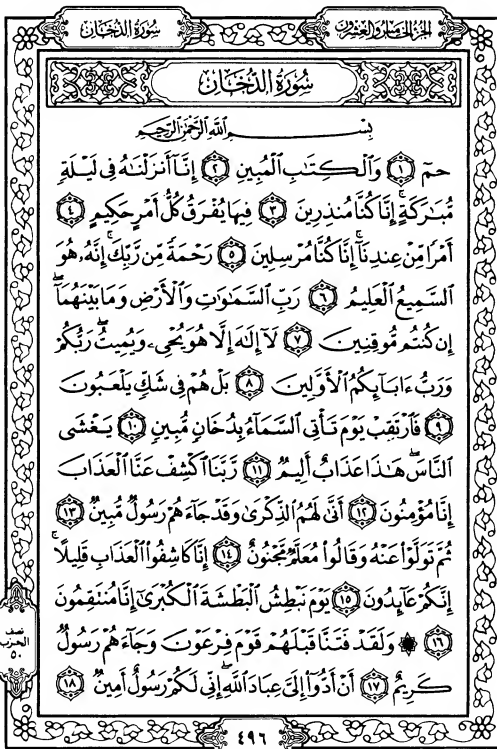 الجزء الخامس والعشرون سورة الدخان
سورة الدخان
بسم الله الرحمن الرحيم
حمٓ ١ وَٱلۡكِتَٰبِ ٱلۡمُبِينِ ٢ إِنَّآ أَنزَلۡنَٰهُ فِي لَيۡلَةٖ
مُّبَٰرَكَةٍۚ إِنَّا كُنَّا مُنذِرِينَ ٣ فِيهَا يُفۡرَقُ كُلُّ أَمۡرٍ حَكِيمٍ ٤
أَمۡرٗا مِّنۡ عِندِنَآۚ إِنَّا كُنَّا مُرۡسِلِينَ ٥ رَحۡمَةٗ مِّن رَّبِّكَۚ إِنَّهُۥ هُوَ
ٱلسَّمِيعُ ٱلۡعَلِيمُ ٦ رَبِّ ٱلسَّمَٰوَٰتِ وَٱلۡأَرۡضِ وَمَا بَيۡنَهُمَآۖ
إِن كُنتُم مُّوقِنِينَ ٧ لَآ إِلَٰهَ إِلَّا هُوَ يُحۡيِۦ وَيُمِيتُۖ رَبُّكُمۡ
وَرَبُّ ءَابَآئِكُمُ ٱلۡأَوَّلِينَ ٨ بَلۡ هُمۡ فِي شَكّٖ يَلۡعَبُونَ
٩ فَٱرۡتَقِبۡ يَوۡمَ تَأۡتِي ٱلسَّمَآءُ بِدُخَانٖ مُّبِينٖ ١٠ يَغۡشَى
ٱلنَّاسَۖ هَٰذَا عَذَابٌ أَلِيمٞ ١١ رَّبَّنَا ٱكۡشِفۡ عَنَّا ٱلۡعَذَابَ
إِنَّا مُؤۡمِنُونَ ١٢ أَنَّىٰ لَهُمُ ٱلذِّكۡرَىٰ وَقَدۡ جَآءَهُمۡ رَسُولٞ مُّبِينٞ ١٣
ثُمَّ تَوَلَّوۡاْ عَنۡهُ وَقَالُواْ مُعَلَّمٞ مَّجۡنُونٌ ١٤ إِنَّا كَاشِفُواْ ٱلۡعَذَابِ قَلِيلًاۚ
إِنَّكُمۡ عَآئِدُونَ ١٥ يَوۡمَ نَبۡطِشُ ٱلۡبَطۡشَةَ ٱلۡكُبۡرَىٰٓ إِنَّا مُنتَقِمُونَ
١٦ ۞ وَلَقَدۡ فَتَنَّا قَبۡلَهُمۡ قَوۡمَ فِرۡعَوۡنَ وَجَآءَهُمۡ رَسُولٞ
كَرِيمٌ ١٧ أَنۡ أَدُّوٓاْ إِلَيَّ عِبَادَ ٱللَّهِۖ إِنِّي لَكُمۡ رَسُولٌ أَمِينٞ ١٨
نصف
الحزب
٥٠
٤٩٦